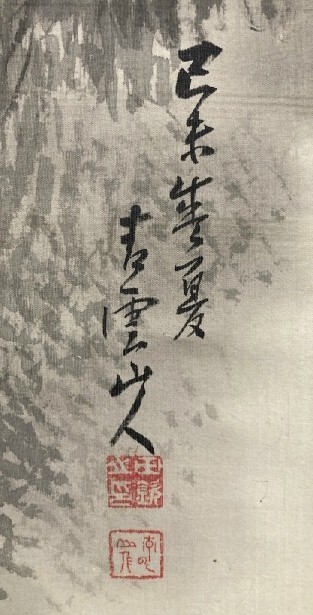 己未盛夏
青雲山人